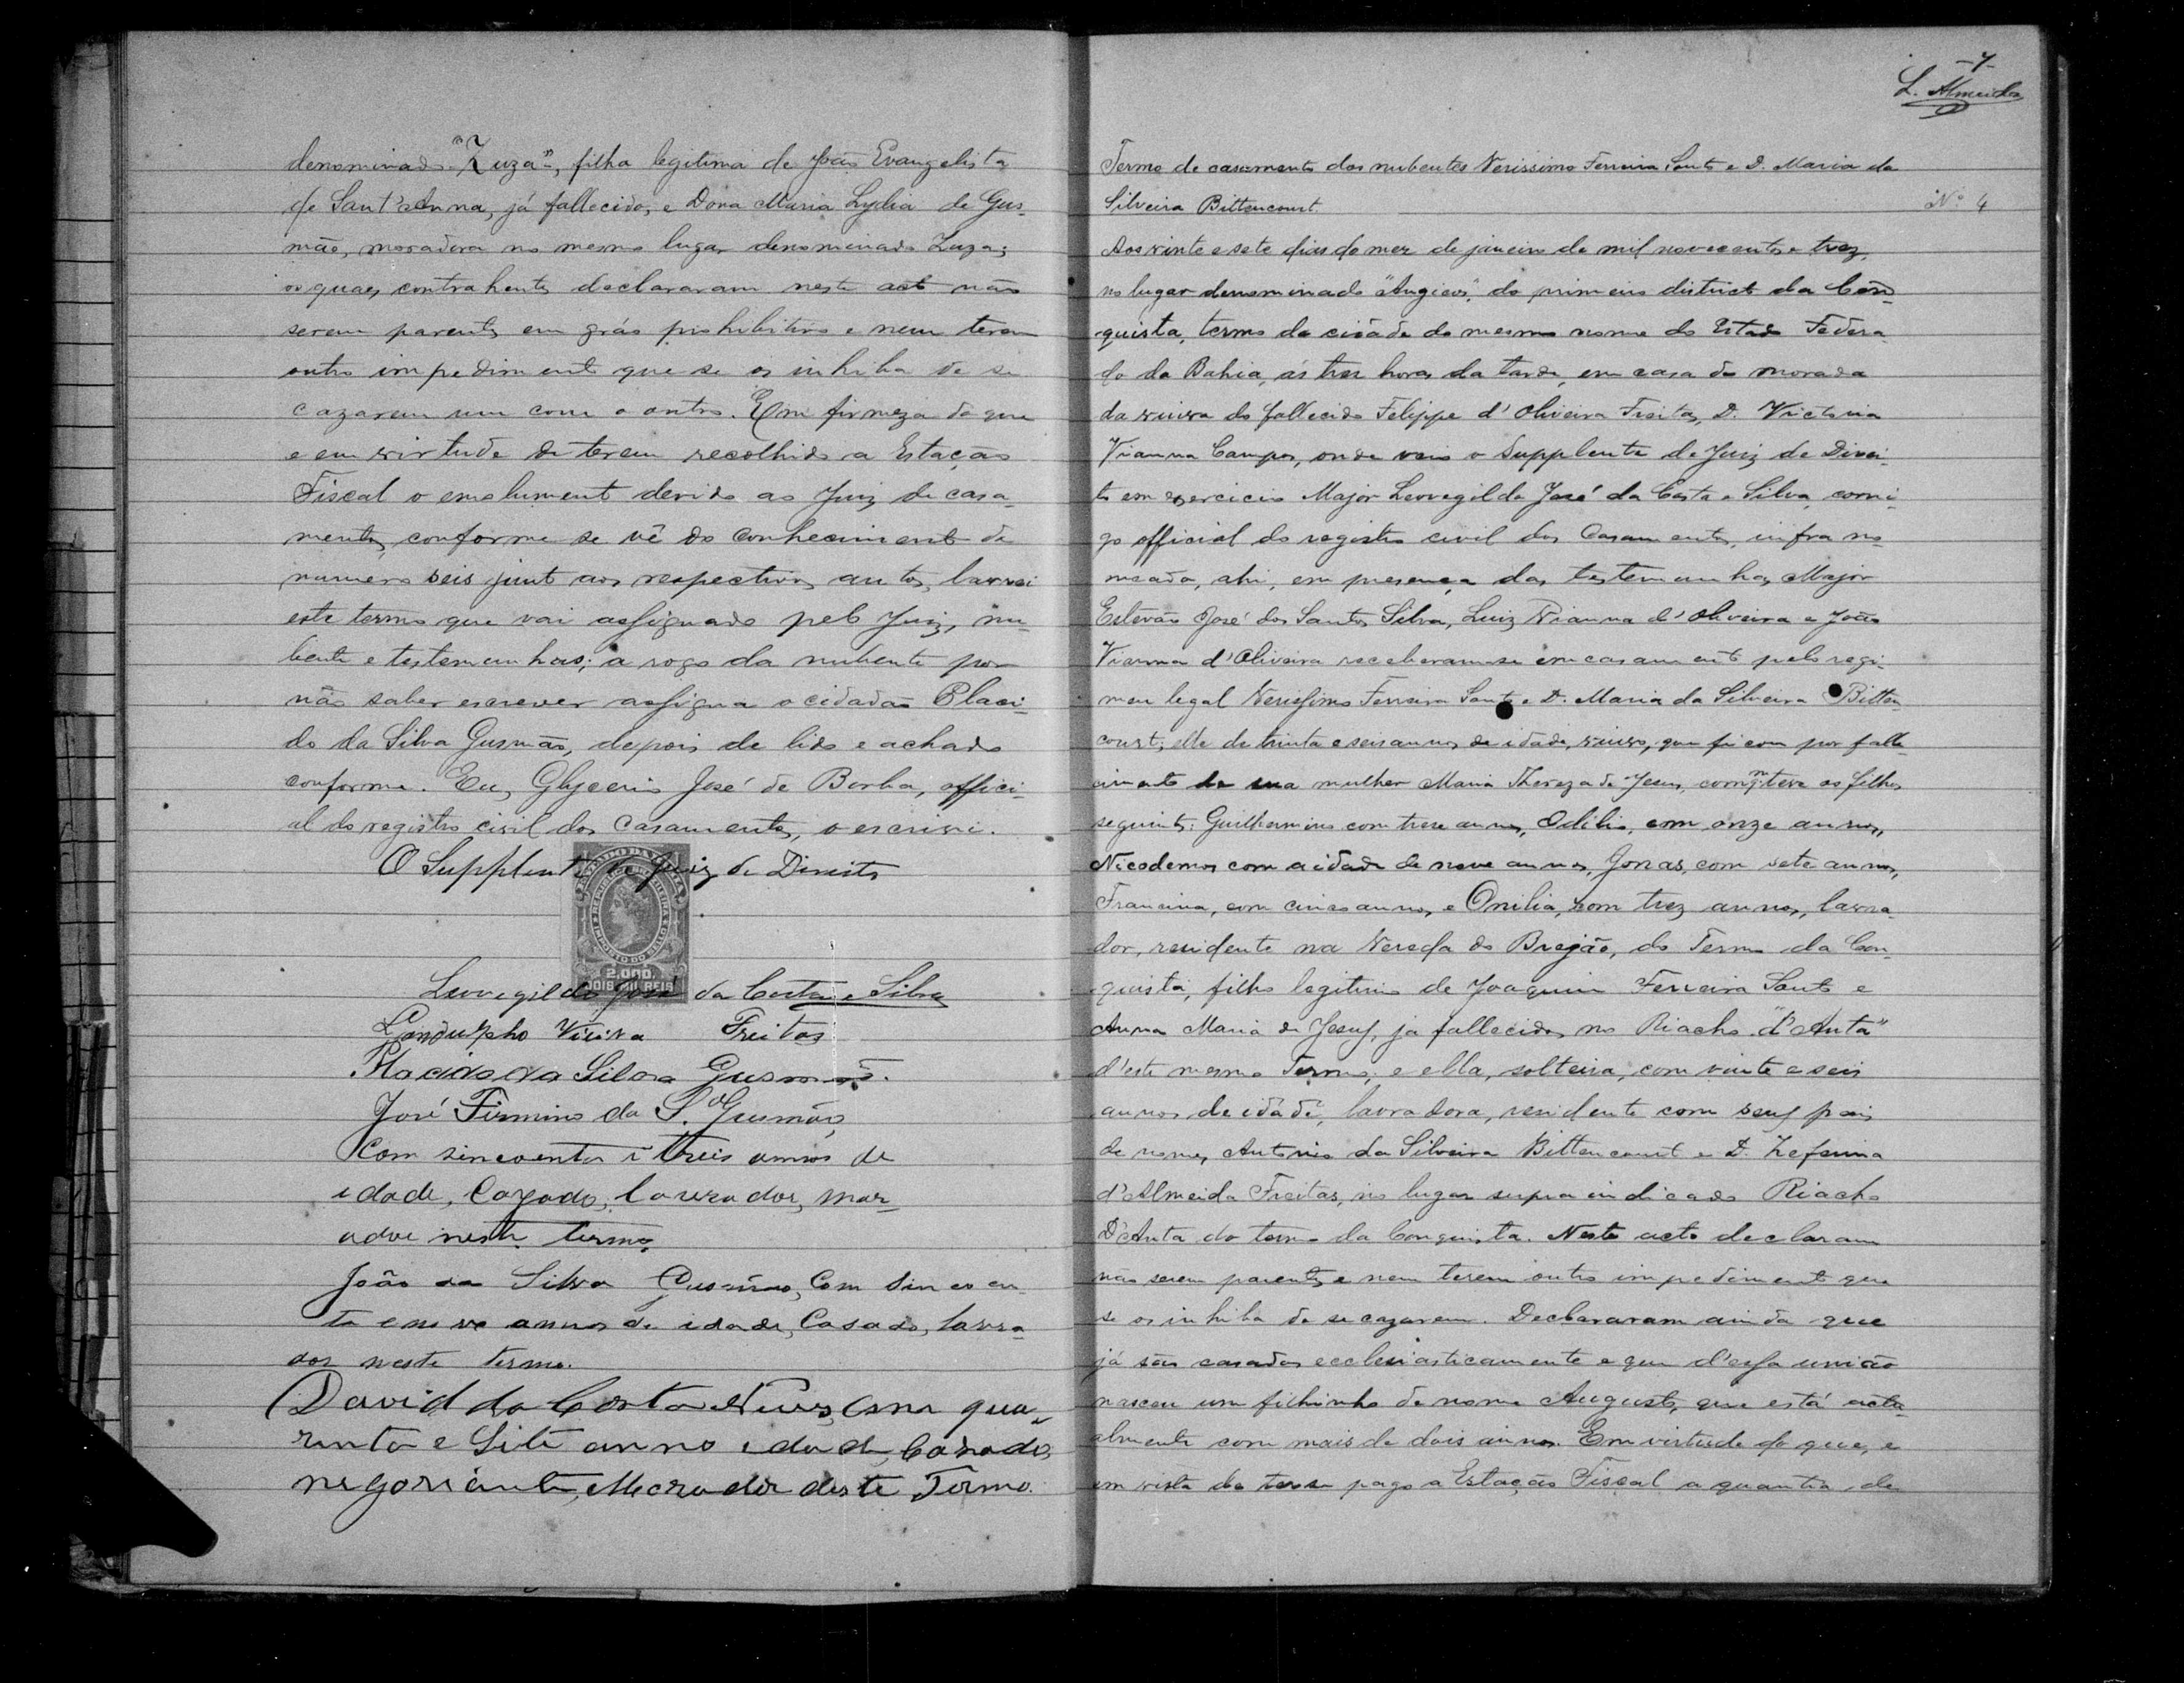 denominado "Zuza", filha legitima de João Evangelista
de Sant'Anna, já fallecido, e Dona Maria Lydia de Gus-
mão, moradora no mesmo lugar denominado Zuza;
os quaes contrahentes declararam neste acto não
serem parentes em gráo prohibitivo e nem terem
outro impedimento que se os inhiba de se
cazarem um com o outro. Em firmeza do que
e em virtude de terem recolhido a Estação
Fiscal o emolumento devido ao Juiz de casa-
mentos, conforme se vê do conhecimento de
numero seis junto aos respectivos autos, lavrei
este termo que vai assignado pelo Juiz, nu-
bente e testemunhas; a rogo da nubente por
não saber escrever assigna o cidadão Placi-
do da Silva Gusmão, depois de lido e achado
conforme. Eu, Glycerio José de Borba, offici-
al do registro civil dos Casamentos, o escrivi.
O Supplente de Juiz de Direito
2,000.
DOIS MIL REIS
Leovegildo José da Costa e Silva
Gandulpho Vieira Freitas
Placido da Silva Gusmão.
José Firmino da S.ª Gusmão,
Com sincoenta i treis annos de
idade, Cazado, lavrador, mor-
ador neste termo.
João da Silva Gusmão, Com sincoen-
ta e nove annos de idade, Casado, lavra-
dor neste termo.
David da Costa Nunes, Com qua-
renta e Sete anno idade, Casado,
negoriante, Morador deste Termo.
-7-
L. Almeida
Termo de casamento dos nubentes Verissimo Ferreira Souto e D. Maria da
Silveira Bittencourt. Nº 4
Aos vinte e sete dias do mez de janeiro de mil novecentos e trez,
no lugar denominado "Angicos", do primeiro districto da Con-
quista, termo da cidade do mesmo nome do Estado Federa-
do da Bahia, ás tres horas da tarde, em casa de morada
da viuva do fallecido Felippe d'Oliveira Freitas, D. Victoria
Vianna Campos, onde veio o Supplente de Juiz de Direi-
to em exercicio Major Leovegildo José da Costa e Silva, comi-
go official do registro civil dos Casamentos, infra no-
meado, ahi, em presença das testemunhas Major
Estevão José dos Santos Silva, Luiz Vianna d'Oliveira e João
Vianna d'Oliveira receberam-se em casamento pelo regi-
men legal Verissimo Ferreira Souto e D. Maria da Silveira Bitten-
court; elle de trinta e seis annos de idade, viuvo, que ficou por falle-
cimento de sua mulher Maria Thereza de Jesus, com qm teve os filhos
seguintes: Guilhermino com treze annos, Odilio, com onze annos,
Nicodemos com a idade de nove annos, Jonas, com sete annos,
Francina, com cinco annos, e Onilia, com trez annos, lavra-
dor, residente na Vereda do Brejão, do Termo da Con-
quista, filho legitimo de Joaquim Ferreira Souto e
Anna Maria de Jesus, ja fallecidos no Riacho "d'Anta"
d'este mesmo Termo; e ella, solteira, com vinte e seis
annos de idade, lavradora, residente com seus pais
de nomes Antonio da Silveira Bittencourt e D. Zeferina
d'Almeida Freitas, no lugar supra indicado Riacho
D'Anta do termo da Conquista. Neste acto declaram
não serem parentes e nem terem outro impedimento que
se os inhiba de se cazarem. Declararam ainda que
já são casados ecclesiasticamente e que d'essa união
nasceu um filhinho de nome Augusto, que está actu-
almente com mais de dois annos. Em virtude do que, e
em vista de ter se pago a Estação Fiscal a quantia de